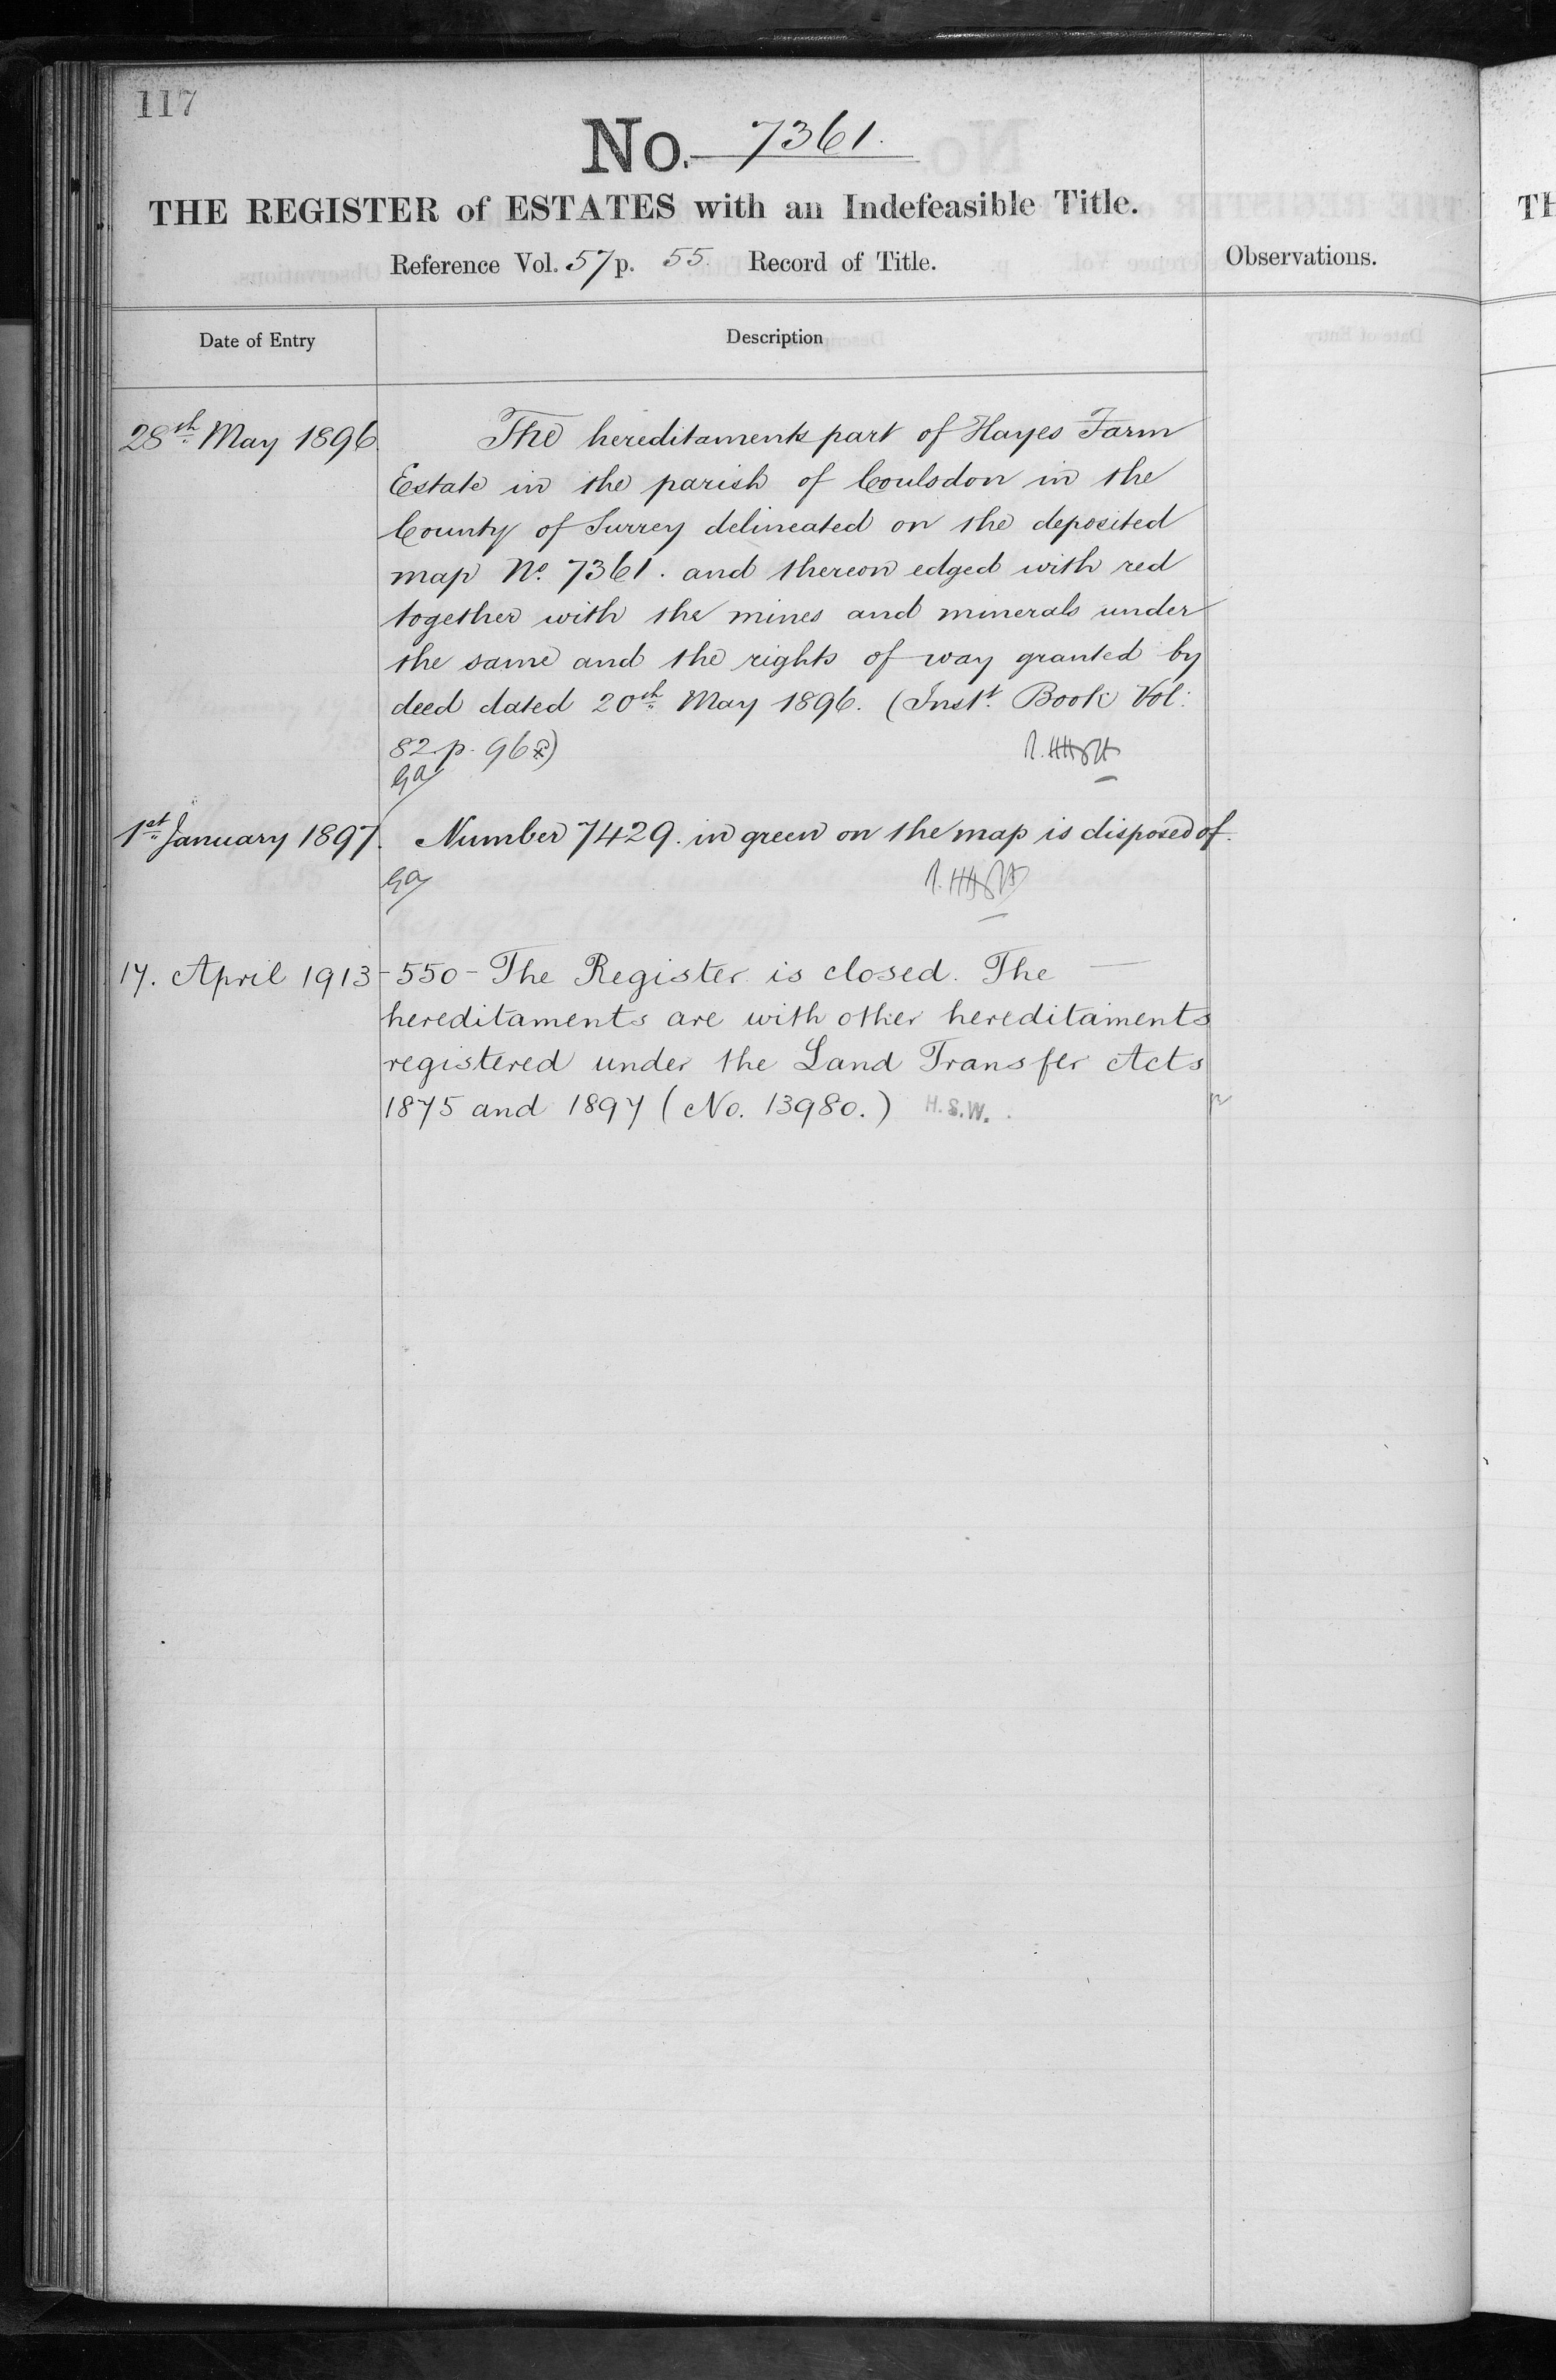 117
No. 7361.
THE REGISTER of ESTATES with an Indefeasible Title.
Reference Vol. 57 p. 55. Record of Title.
Observations.
Date of Entry
Description
28th May 1896. The hereditaments part of Hayes Farm
Estate in the parish of Coulsdon in the
County of Surrey delineated on the deposited
map No. 7361. and thereon edged with red
together with the mines and minerals under
the same and the rights of way granted by
deed dated 20th May 1896. (Inst. Book Vol:
82. p. 96)
1st January 1897. Number 7429. in green on the map is disposed of.
17. April 1913 - 550 - The Register is closed. The —
hereditaments are with other hereditaments
registered under the Land Transfer Acts
1875 and 1897 (No. 13980.) H.S.W.
TH